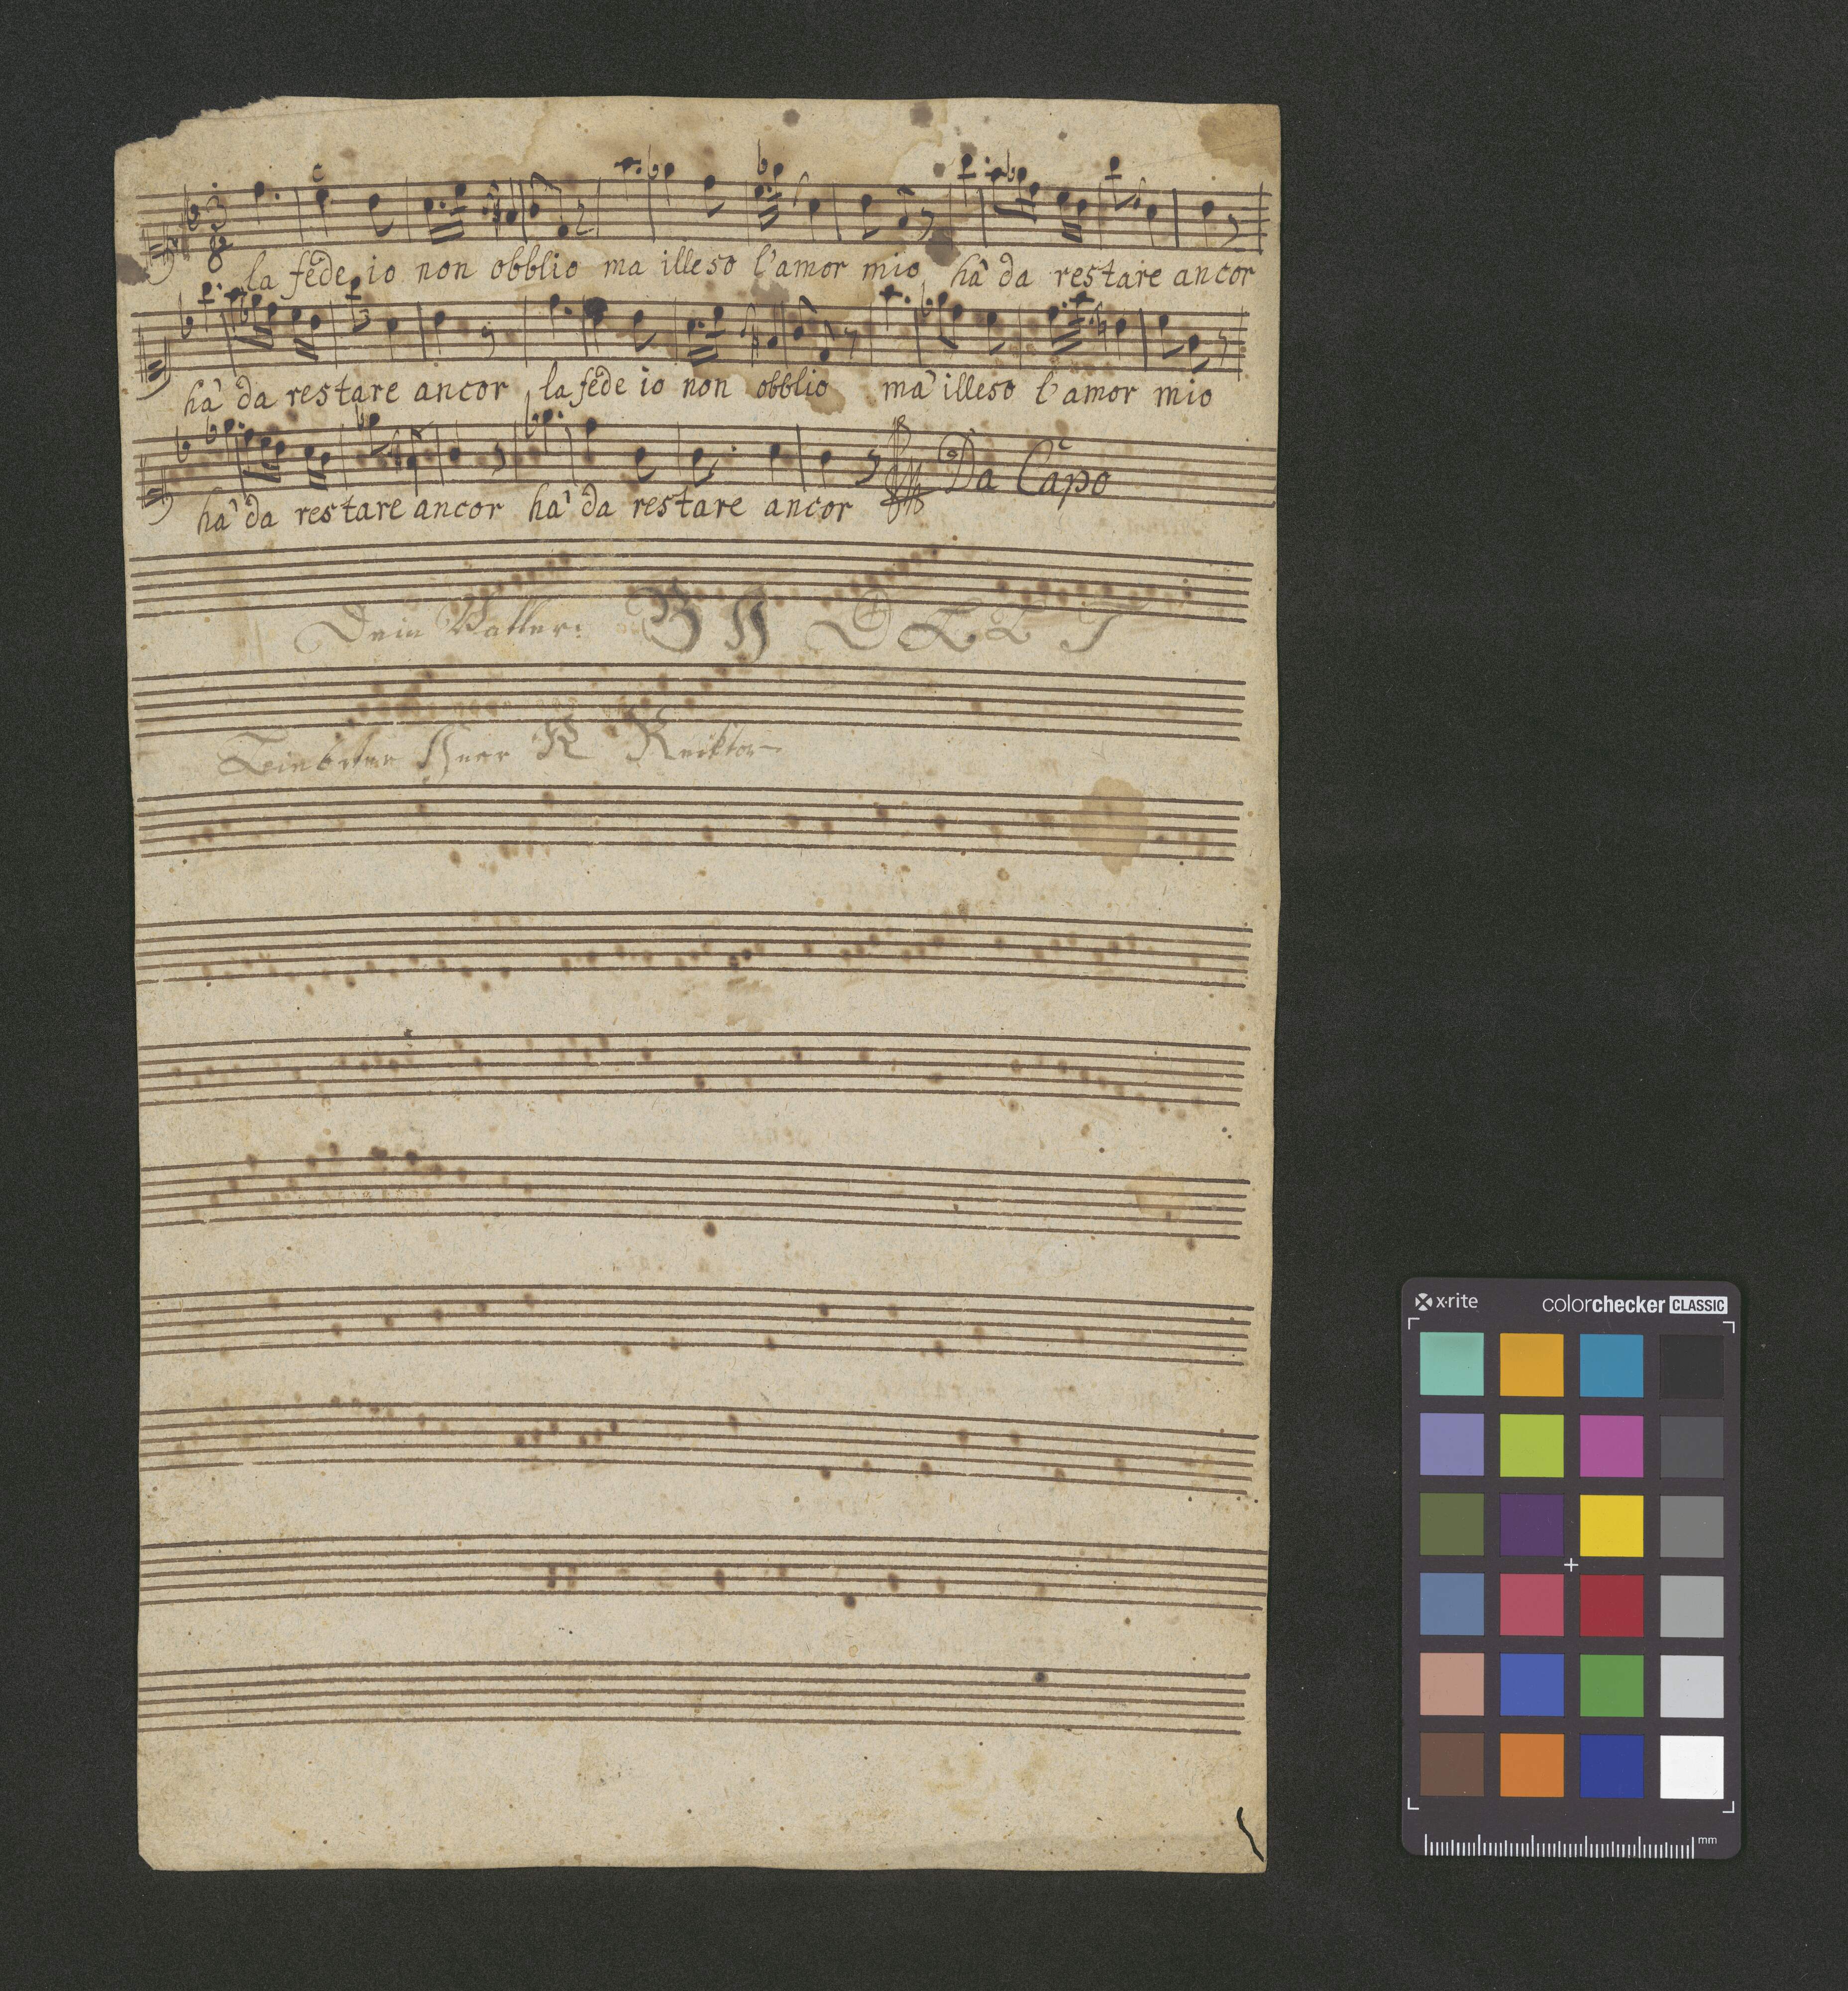 3
8
la fede io non obblio ma illeso l'amor mio hà da restare ancor
hà da restare ancor la fede io non obblio mà illeso l'amor mio
hà da restare ancor hà da restare ancor Da Capo
Dein Vatter:
Herr R Reiktor
x·rite colorchecker CLASSIC
mm